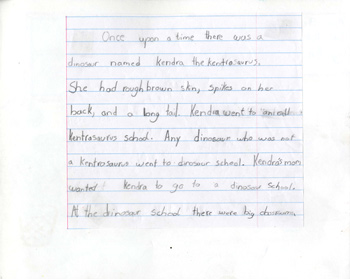 Once upon a time there was a
dinosaur named Kendra the kentrasaurus.
She had rough brown skin, spikes on her
back, and a long tail. Kendra went to an
kentrasaurus school. Any dinosaur who was not
a kentrosaurus went to dinosaur school. Kendra's mom
wanted Kendra to go to a dinosaur school.
At the dinosaur school there were big classrooms